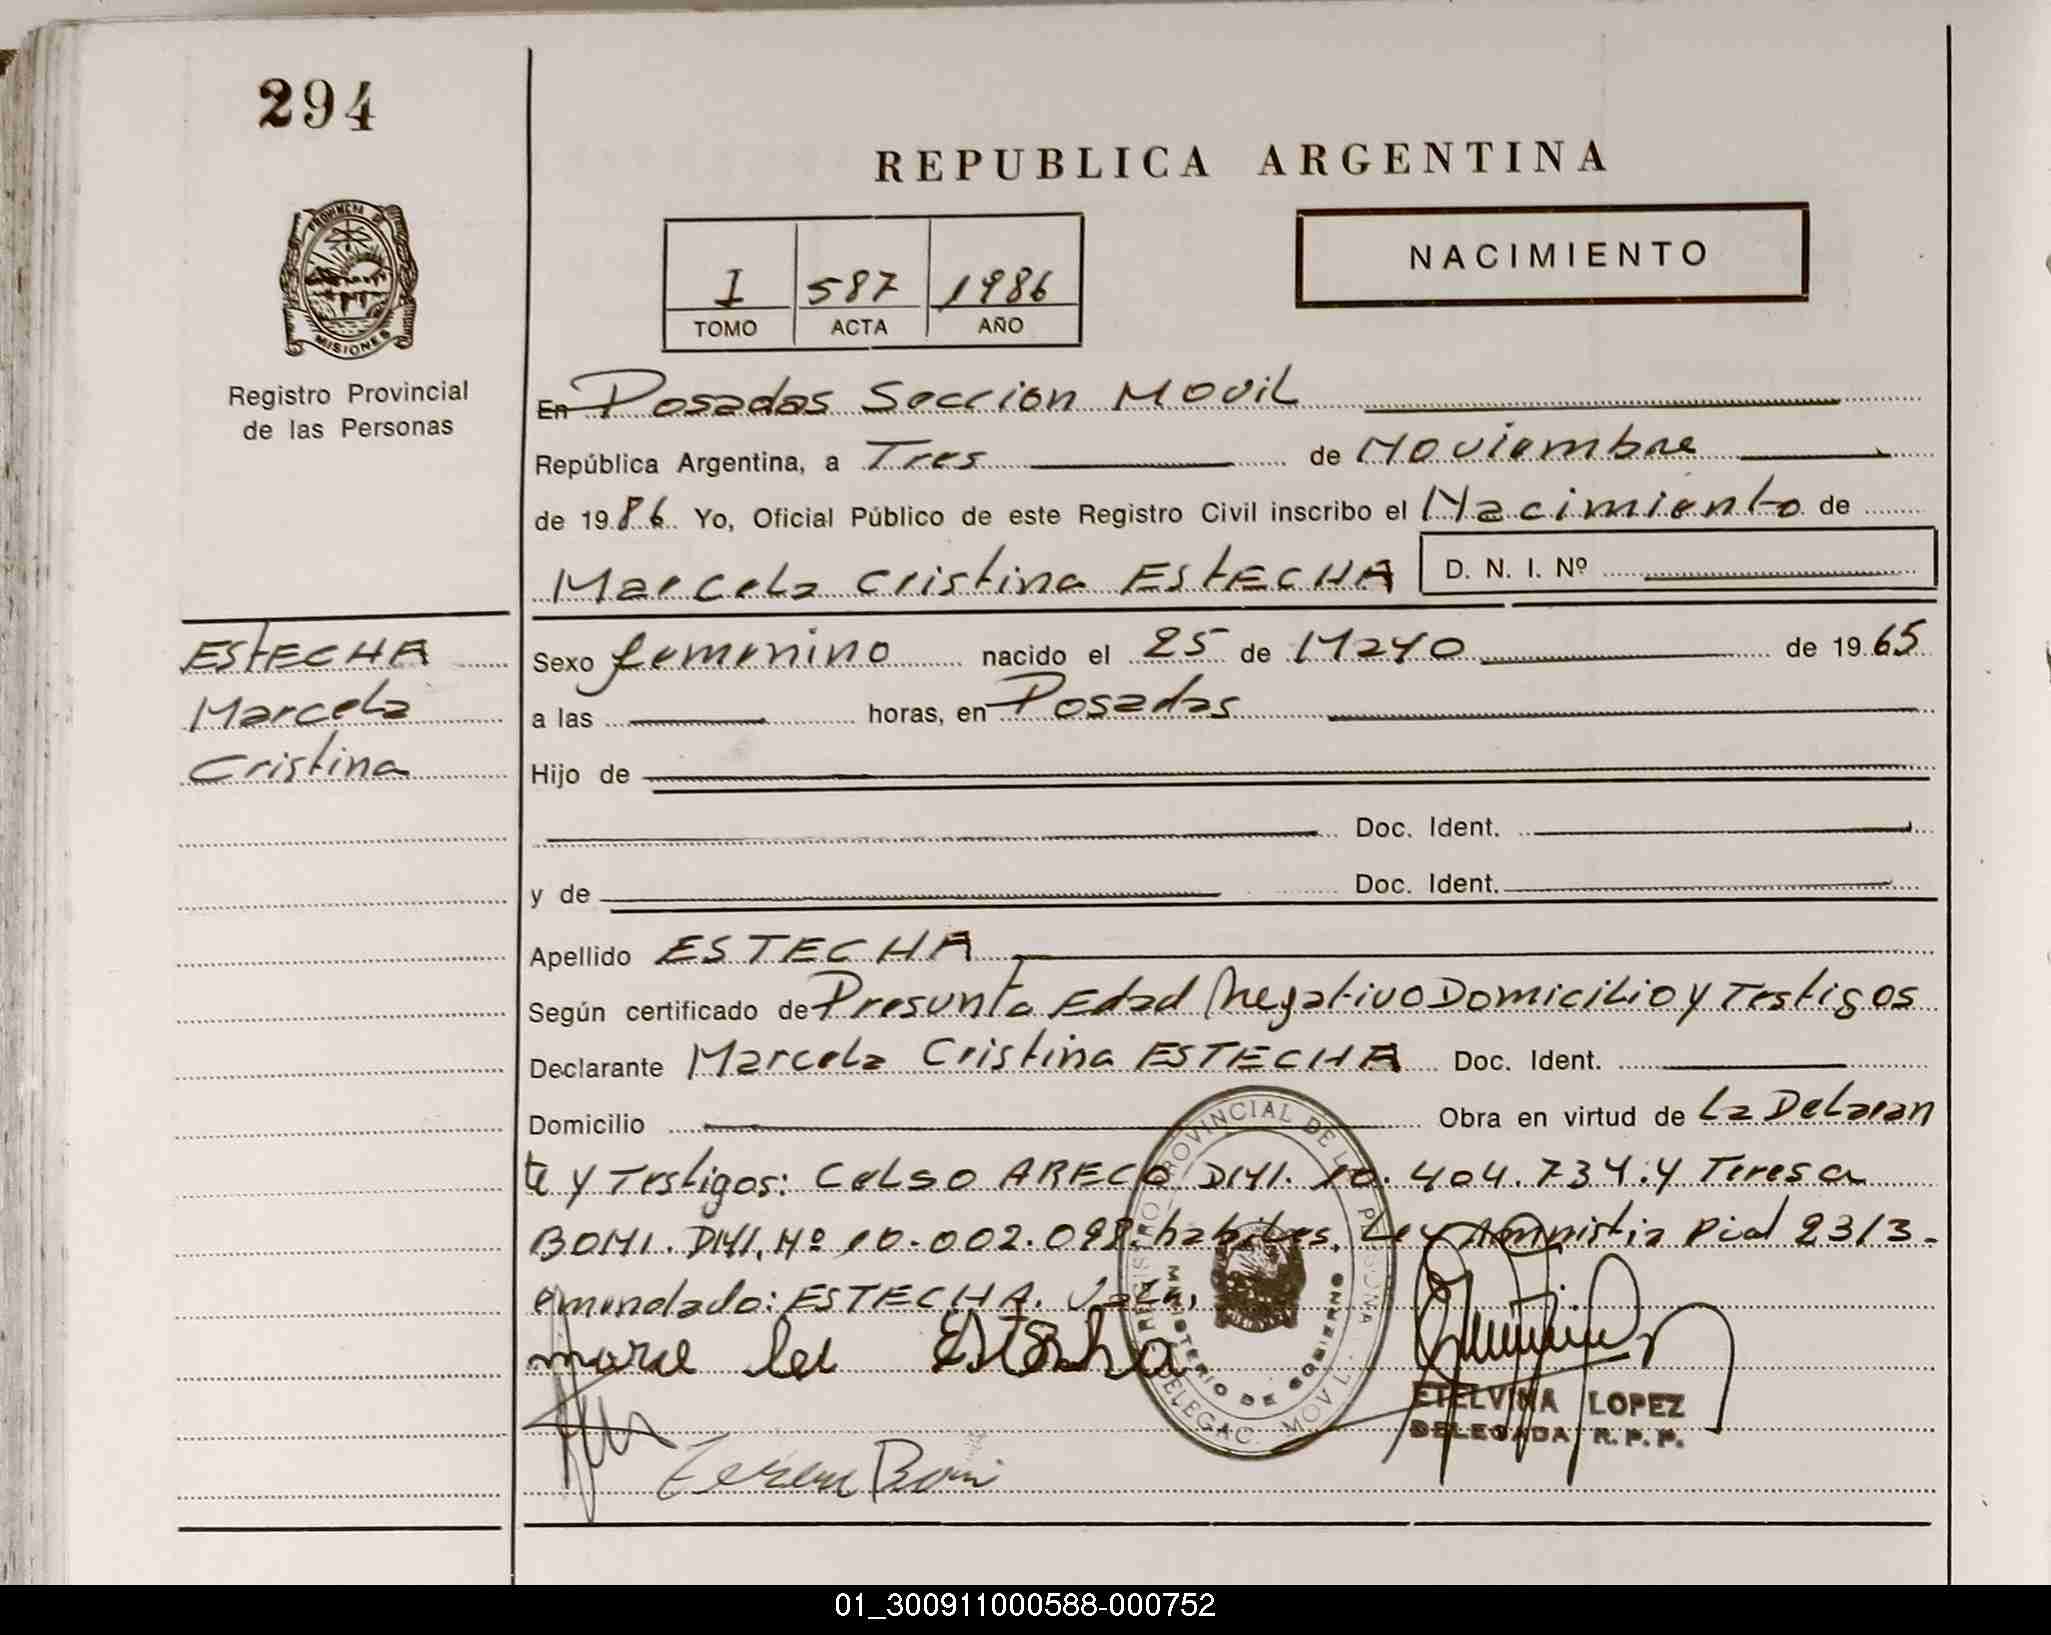 294
REPUBLICA ARGENTINA
PROVINCIA DE
MISIONES
I 587 1986
TOMO ACTA AÑO
NACIMIENTO
Registro Provincial
de las Personas
En Posadas Seccion Movil
República Argentina, a Tres de Noviembre
de 1986 Yo, Oficial Público de este Registro Civil inscribo el Nacimiento de
Marcela Cristina ESTECHA D. N. I. Nº
ESTECHA
Marcela
Cristina
Sexo femenino nacido el 25 de Mayo de 1965
a las horas, en Posadas
Hijo de
Doc. Ident.
y de Doc. Ident.
Apellido ESTECHA
Según certificado de Presunta Edad Negativo Domicilio y Testigos
Declarante Marcela Cristina ESTECHA Doc. Ident.
Domicilio Obra en virtud de La Delaran
te y Testigos: Celso ARECO DNI. 10.404.734.y Teresa
BONI. DNI. Nº 10.002.098. habiles. Ley Amnistia Pcial 2313-
emendado: ESTECHA. Vale,
marce la Estecha
REGISTRO PROVINCIAL DE LAS PERSONAS
MINISTERIO DE GOBIERNO
DELEGAC. MOVIL
ETELVINA LOPEZ
DELEGADA R.P.P.
Teresa Boni
01_300911000588-000752